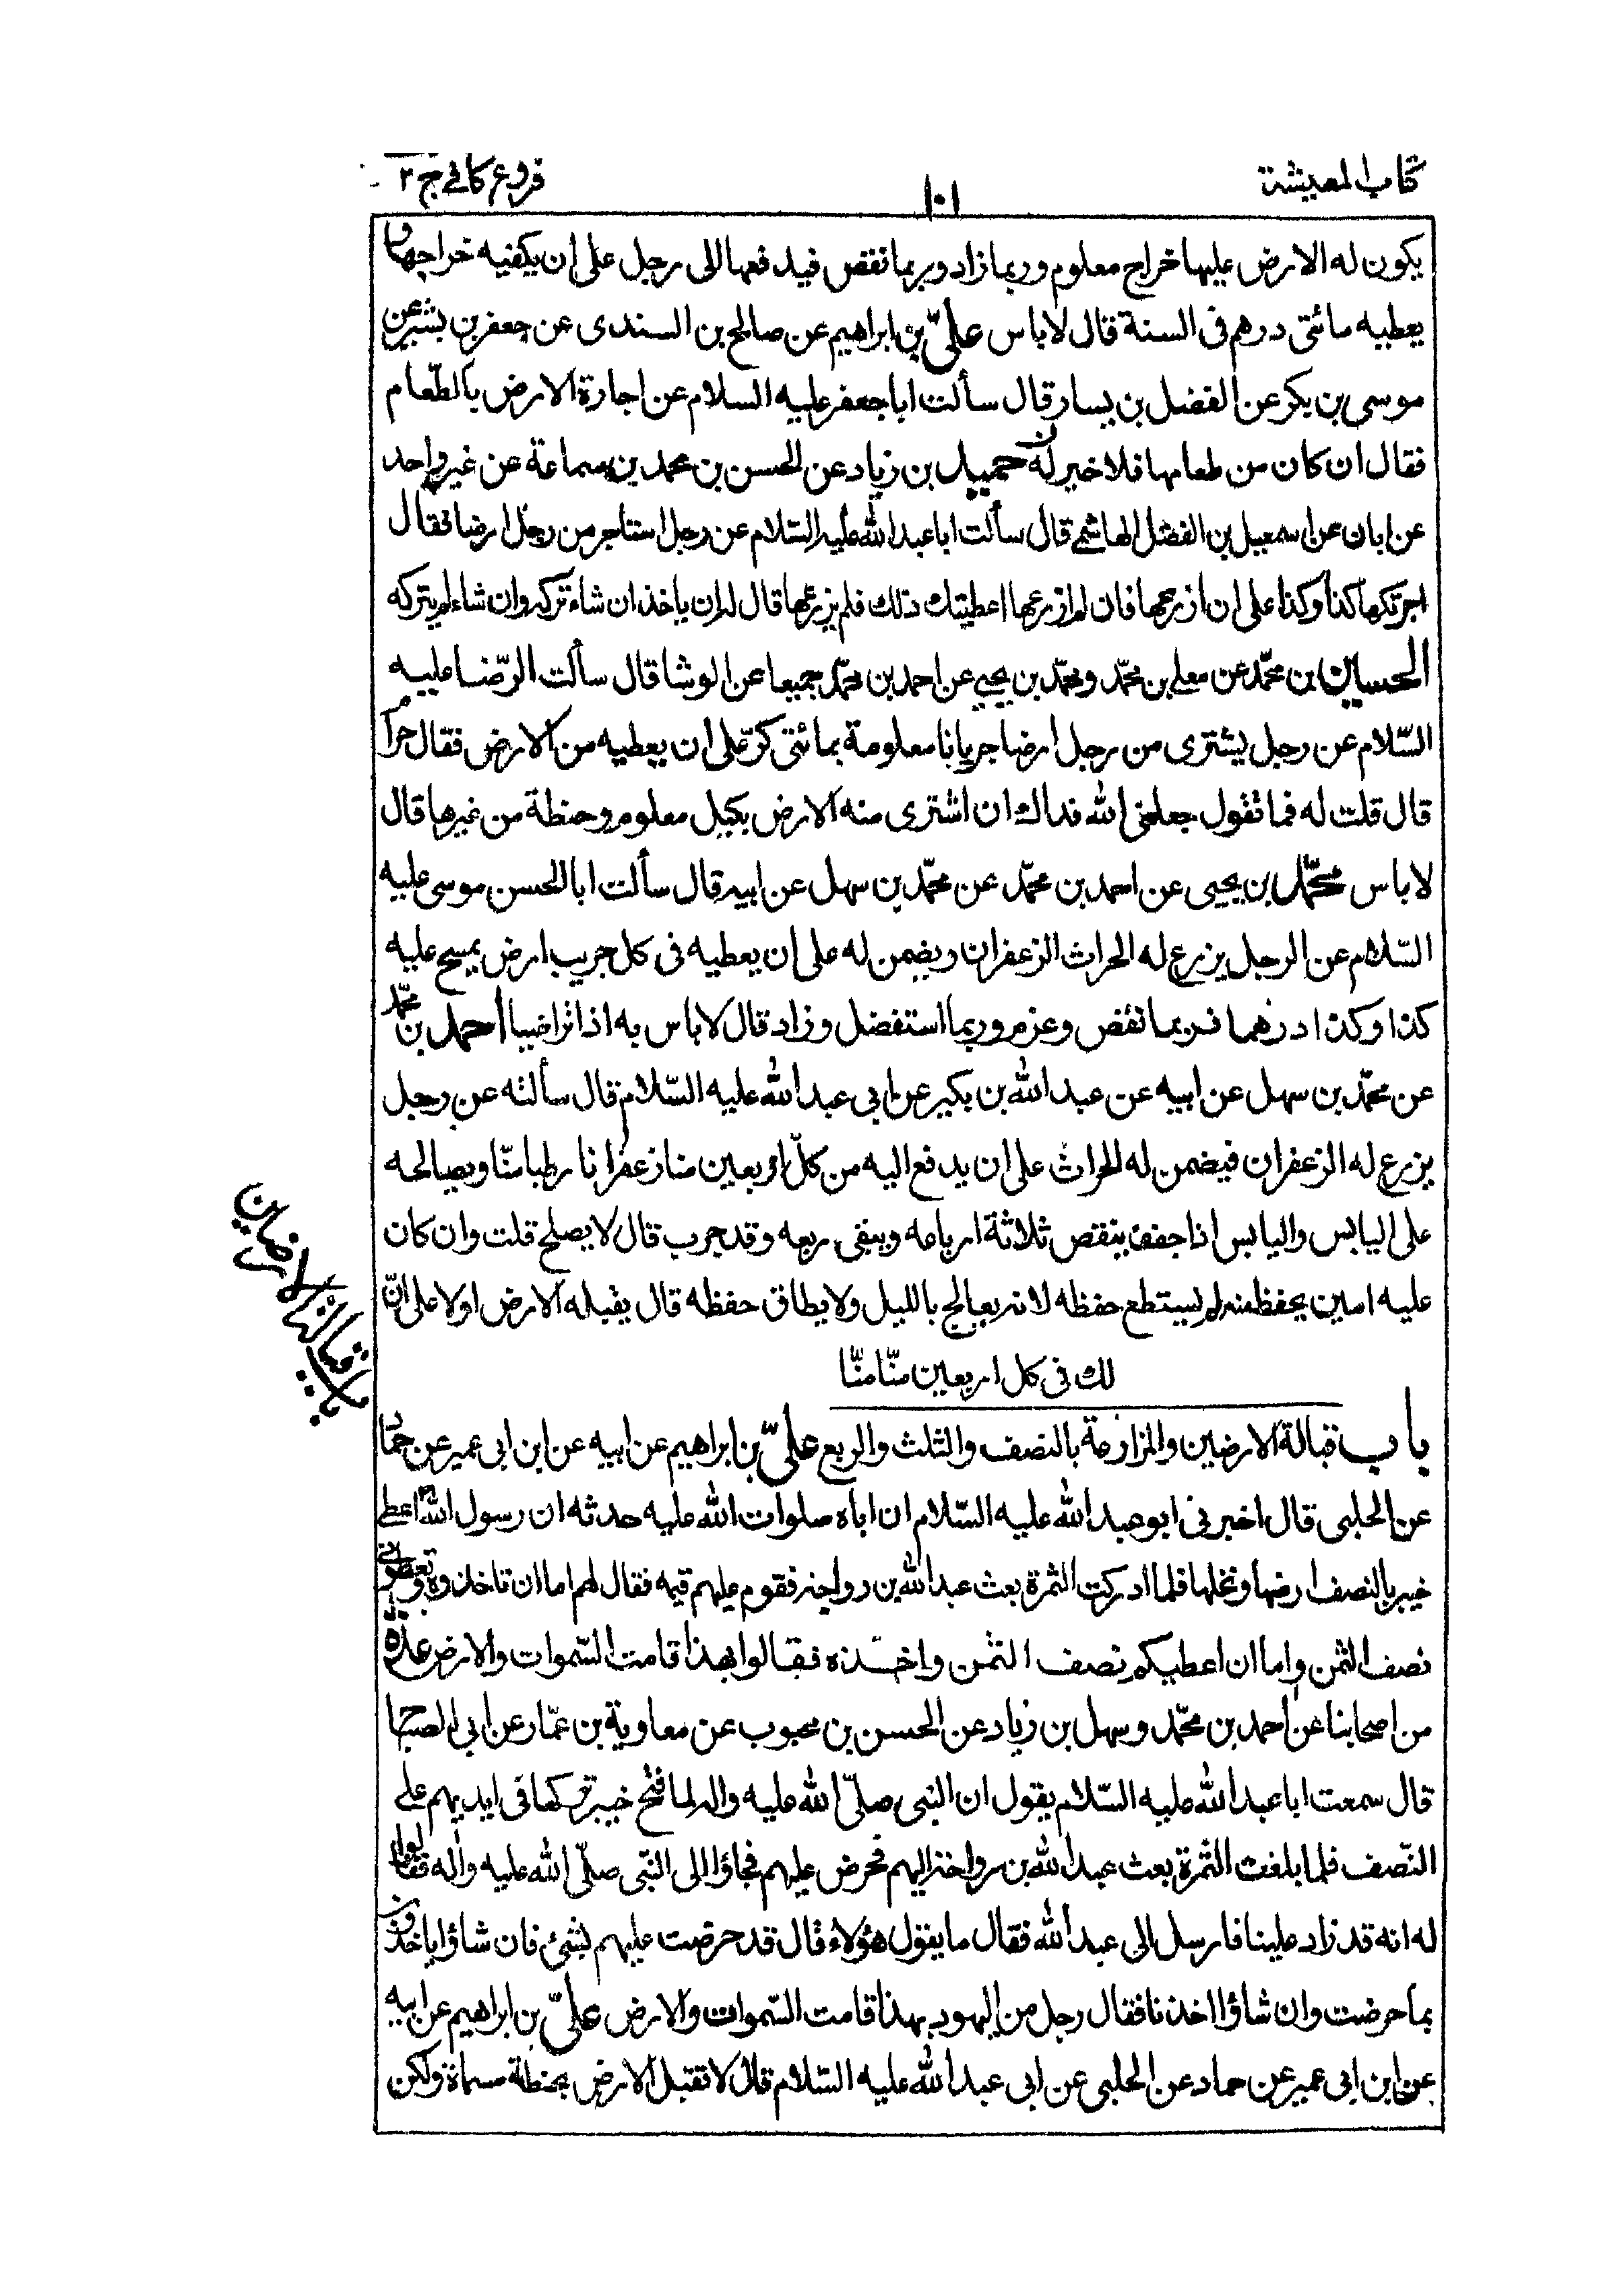 كتاب المعيشة
١٠١
فروع كافي ج ٢
يكون له الارض عليها خراج معلوم وربما زاد وربما نقص فيدفعها الى رجل على ان يكفيه خراجها و
يعطيه مائتى درهم فى السنة قال لا باس علىّ بن ابراهيم عن صالح بن السندى عن جعفر بن بشير عن
موسى بن بكر عن الفضل بن يسار قال سألت ابا جعفر عليه السلام عن اجارة الارض بالطّعام
فقال ان كان من طعامها فلا خير فيه حميد بن زياد عن الحسن بن محمد بن سماعة عن غير واحد
عن ابان عن اسمعيل بن الفضل الهاشمى قال سألت ابا عبد الله عليه السّلام عن رجل استاجر من رجل ارضا فقال
اجرتكها كذا وكذا على ان ازرعها فان لم ازرعها اعطيتك ذلك فلم يزرعها قال له ان ياخذ ان شاء تركه وان شاء لم يتركه
الحسين بن محمّد عن معلى بن محمّد ومحمّد بن يحيى عن احمد بن محمّد جميعا عن الوشا قال سألت الرّضا عليه
السّلام عن رجل يشترى من رجل ارضا جربانا معلومة بمائتى كرّ على ان يعطيه من الارض فقال حرام
قال قلت له فما تقول جعلنى الله فداك ان اشترى منه الارض بكيل معلوم وحنطة من غيرها قال
لا باس محمّد بن يحيى عن احمد بن محمّد عن محمّد بن سهل عن ابيه قال سألت ابا الحسن موسى عليه
السّلام عن الرجل يزرع له الحراث الزعفران ويضمن له على ان يعطيه فى كل جريب ارض يمسح عليه
كذا وكذا درهما فربما نقص وغرم وربما استفضل وزاد قال لا باس به اذا تراضيا احمد بن محمّد
عن محمّد بن سهل عن ابيه عن عبد الله بن بكير عن ابى عبد الله عليه السّلام قال سألته عن رجل
يزرع له الزعفران فيضمن له الحراث على ان يدفع اليه من كلّ اربعين منا زعفرانا رطبا منّا ويصالحه
على اليابس واليابس اذا جفف ينقص ثلاثة ارباعه ويبقى ربعه وقد جرب قال لا يصلح قلت وان كان
عليه امين يحفظه به لم يستطع حفظه لانه يعالج بالليل ولا يطاق حفظه قال يقبله الارض اولا على انّ
لك فى كل اربعين منّا منّا
باب قبالة الارضين
باب قبالة الارضين والمزارعة بالنصف والثلث والربع علىّ بن ابراهيم عن ابيه عن ابن ابى عمير عن حماد
عن الحلبى قال اخبرنى ابو عبد الله عليه السّلام ان اباه صلوات الله عليه حدثه ان رسول الله ص اعطى
خيبر بالنصف ارضها ونخلها فلما ادركت الثمرة بعث عبد الله بن رواحة فقوم عليهم قيمة فقال لهم اما ان تاخذوه وتعطونى
نصف الثمن واما ان اعطيكم نصف الثمن واخذه فقالوا بهذا قامت السّموات والارض عدّة
من اصحابنا عن احمد بن محمّد وسهل بن زياد عن الحسن بن محبوب عن معاوية بن عمّار عن ابى الصباح
قال سمعت ابا عبد الله عليه السّلام يقول ان النبى صلىّ الله عليه واله لما فتح خيبر تركها فى ايديهم على
النّصف فلما بلغت الثمرة بعث عبد الله بن رواحة اليهم فخرص عليهم فجاؤا الى النّبى صلّى الله عليه واله فقالوا
له انه قد زاد علينا فارسل الى عبد الله فقال ما يقول هؤلاء قال قد خرصت عليهم بشئ فان شاؤا ياخذون
بما خرصت وان شاؤا اخذنا فقال رجل من اليهود بهذا قامت السّموات والارض علىّ بن ابراهيم عن ابيه
عن ابن ابى عمير عن حماد عن الحلبى عن ابى عبد الله عليه السّلام قال لا تقبل الارض بحنطة مسماة ولكن